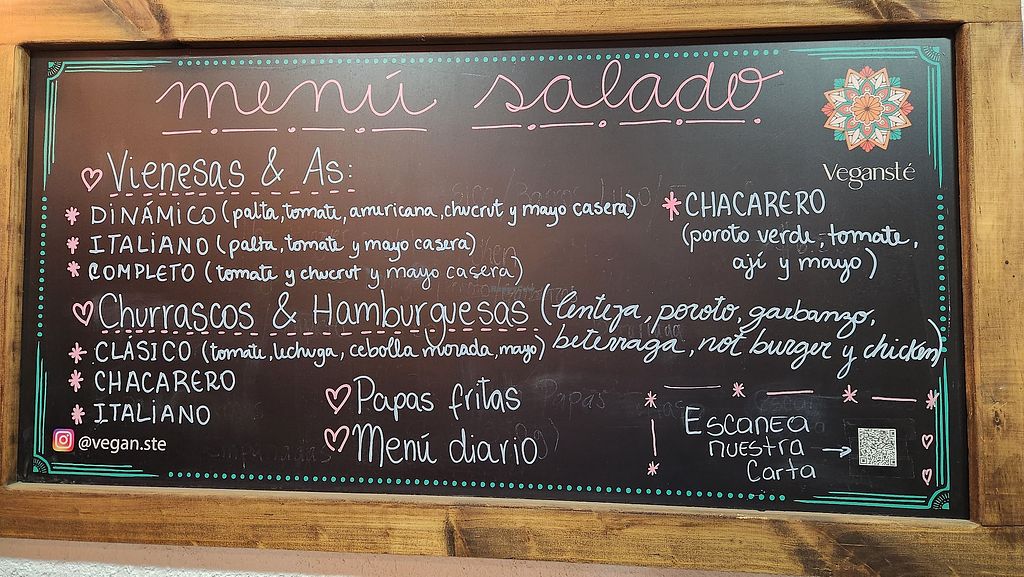 menú salado
Vegansté
Vienesas & As:
* DINÁMICO (palta, tomate, americana, chucrut y mayo casera)
* ITALIANO (palta, tomate y mayo casera)
* COMPLETO (tomate y chucrut y mayo casera)
* CHACARERO
(poroto verde, tomate,
ají y mayo)
Churrascos & Hamburguesas (lenteja, poroto, garbanzo,
beterraga, not burger y chicken)
* CLÁSICO (tomate, lechuga, cebolla morada, mayo)
* CHACARERO
* ITALIANO
Papas fritas
Menú diario
@vegan.ste
Escanea
nuestra
Carta